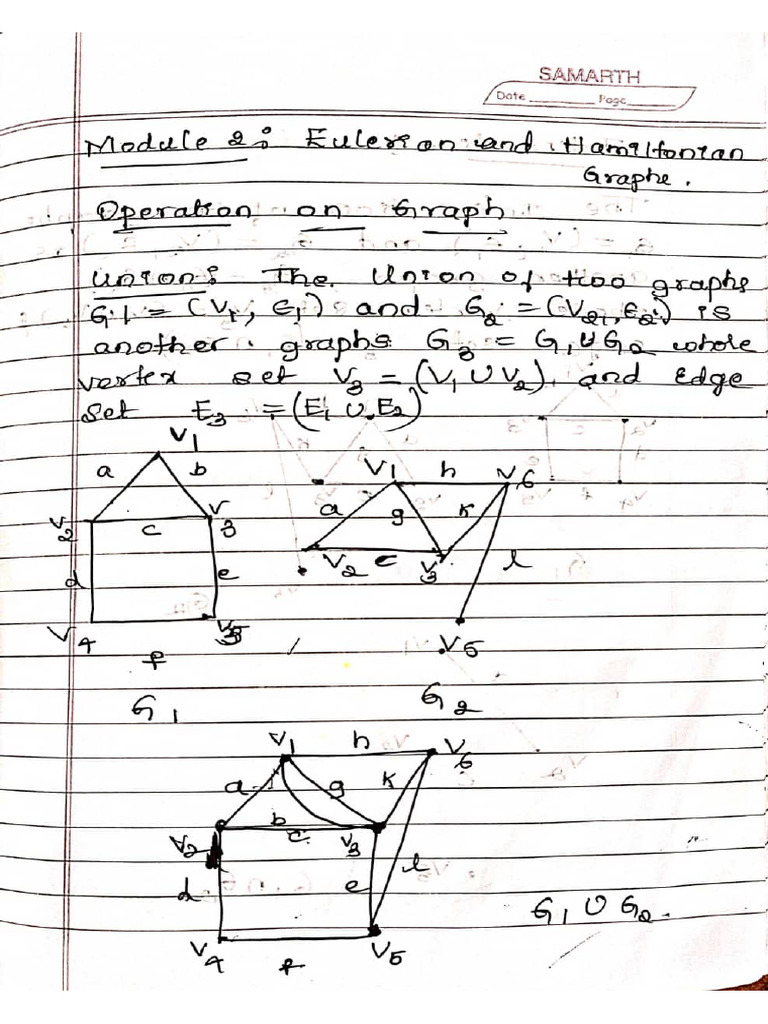 SAMARTH
Date Page
Module 2: Eulerian and Hamiltonian
Graphs.
Operation on Graph
Union: The Union of two graphs
G1 = (V1, E1) and G2 = (V2, E2) is
another graphs G3 = G1 ∪ G2 whole
vertex set V3 = (V1 ∪ V2), and Edge
set E3 = (E1 ∪ E2)
V1
a b
V2 c V3
d e
V4 V5
f
G1
V1 h V6
a g k
V2 c V3 l
V5
G2
V1 h V6
a g k
b
V2 c V3
d e l
V4 f V5
G1 ∪ G2.